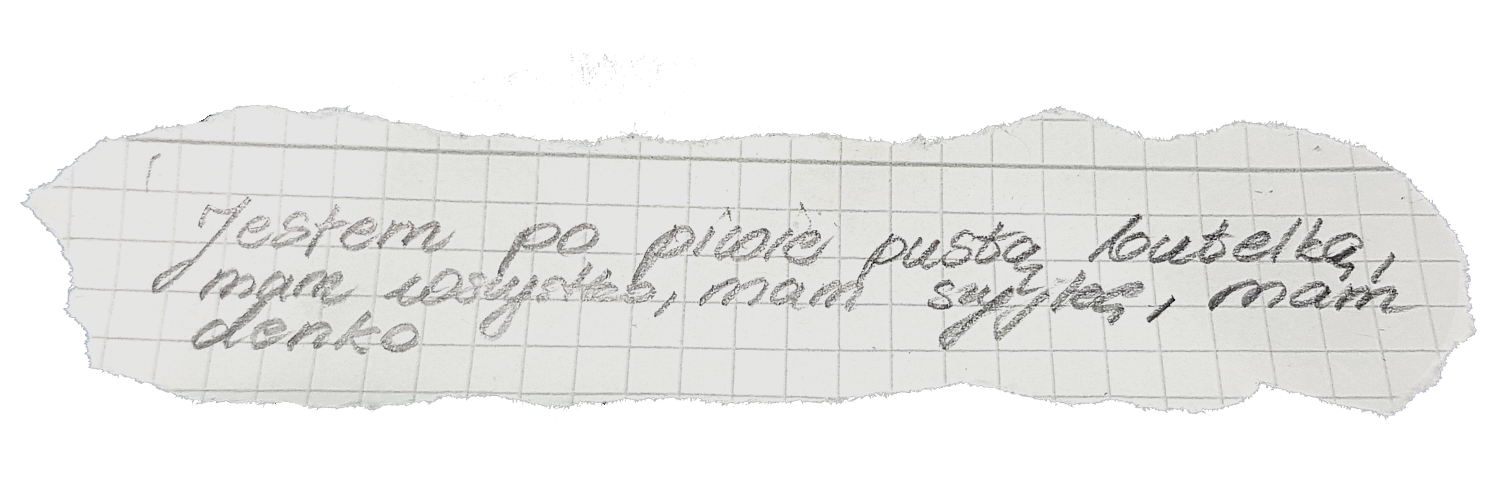 Jestem po piwie pustą butelką,
mam wszystko, mam szyjkę, mam
denko